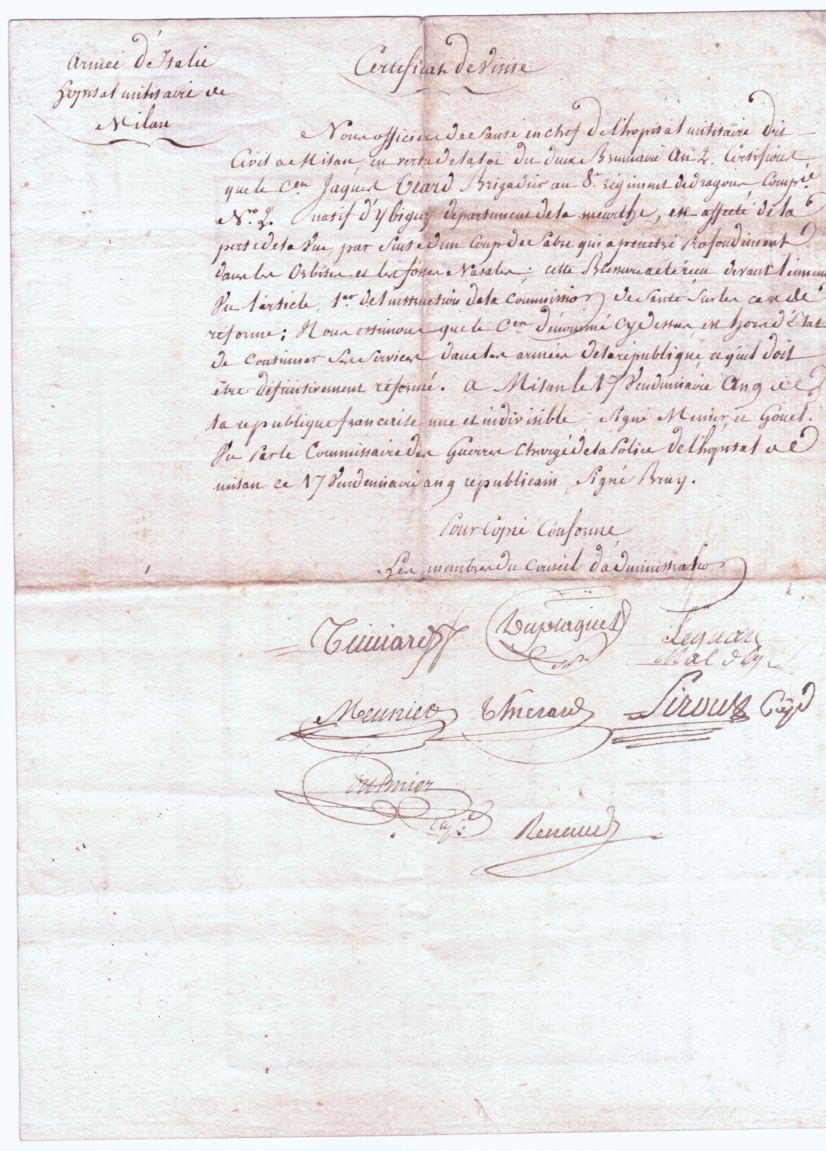 Armée d'Italie
hopital militaire de
Milan
Certificat de Visite
Nous officiers de santé en chef de l'hopital militaire dit
Civil a Milan, en vertu de la loi du deux Brumaire An 2. Certifions
que le Cen Jaques Brigadier au 8e régiment de dragons Compie
No 2. natif d' département de la meurthe, est affecté de la
perte de la Vue, par Suite d'un Coup de Sabre qui a penetré Profondement
dans les Orbites et les fosses Nasales; cette Blessure a été recu devant l'ennemi
Vu l'article 1er de l'instruction de la Commission de Santé Sur les cas de
réforme; Nous estimons que le Cen dénommé Cy dessus, est hors d'État
de Continuer Ses Services dans les armées de la républiqué et qu'il doit
être définitivement réformé. a Milan le 17 Vendemiaire An 9 de
la republique francaise une et indivisible. Signé Menier et Gouet.
Vu Par le Commissaire des Guerres Chargé de la Police de l'hopital de
milan ce 17 Vendemiaire an 9 republicain, Signé Bruy.
Pour Copie Conforme
Les membres du Conseil d'administration
Duplaquet
Meunier
Renaud